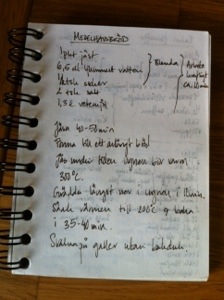 MEDELHAVSBRÖD
1 pkt jäst
6,5 dl ljummet vatten
1 tsk socker
2 tsk salt
1,5 l vetemjöl
Blanda
Arbeta
ca 10 min
Jäsa 40-50 min
Forma till ett avlångt bröd
Jäs under tiden ugnen blir varm
300°C
Grädda längst ner i ugnen i 10 min.
Sänk värmen till 200°C o baka
i 35-40 min.
Svalna på galler utan bakduk.